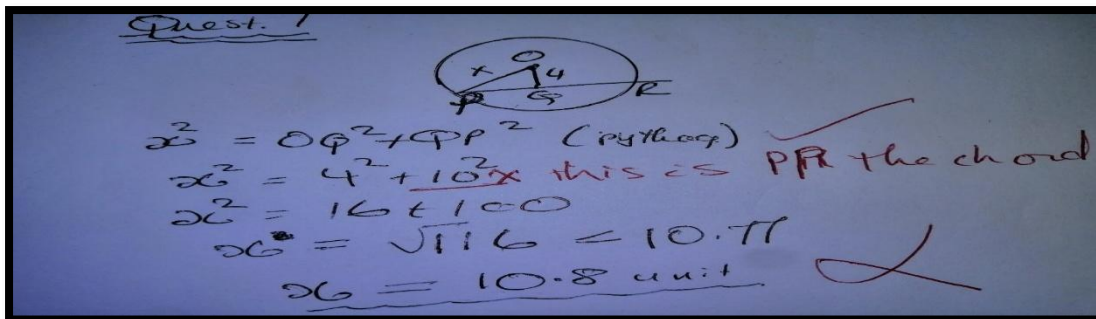 Quest. 1
O
x 4
P Q R
x² = OQ² + QP² (pythag)
x² = 4² + 10² x this is PR the chord
x² = 16 + 100
x = √116 = 10.77
x = 10.8 unit